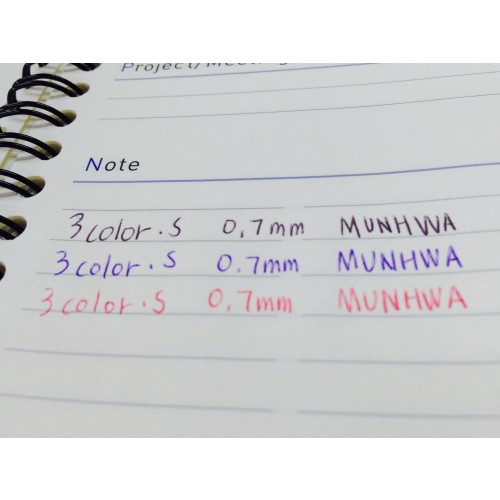 Project/Meeting
Note
3 color . S 0.7mm MUNHWA
3 color . S 0.7mm MUNHWA
3 color . S 0.7mm MUNHWA